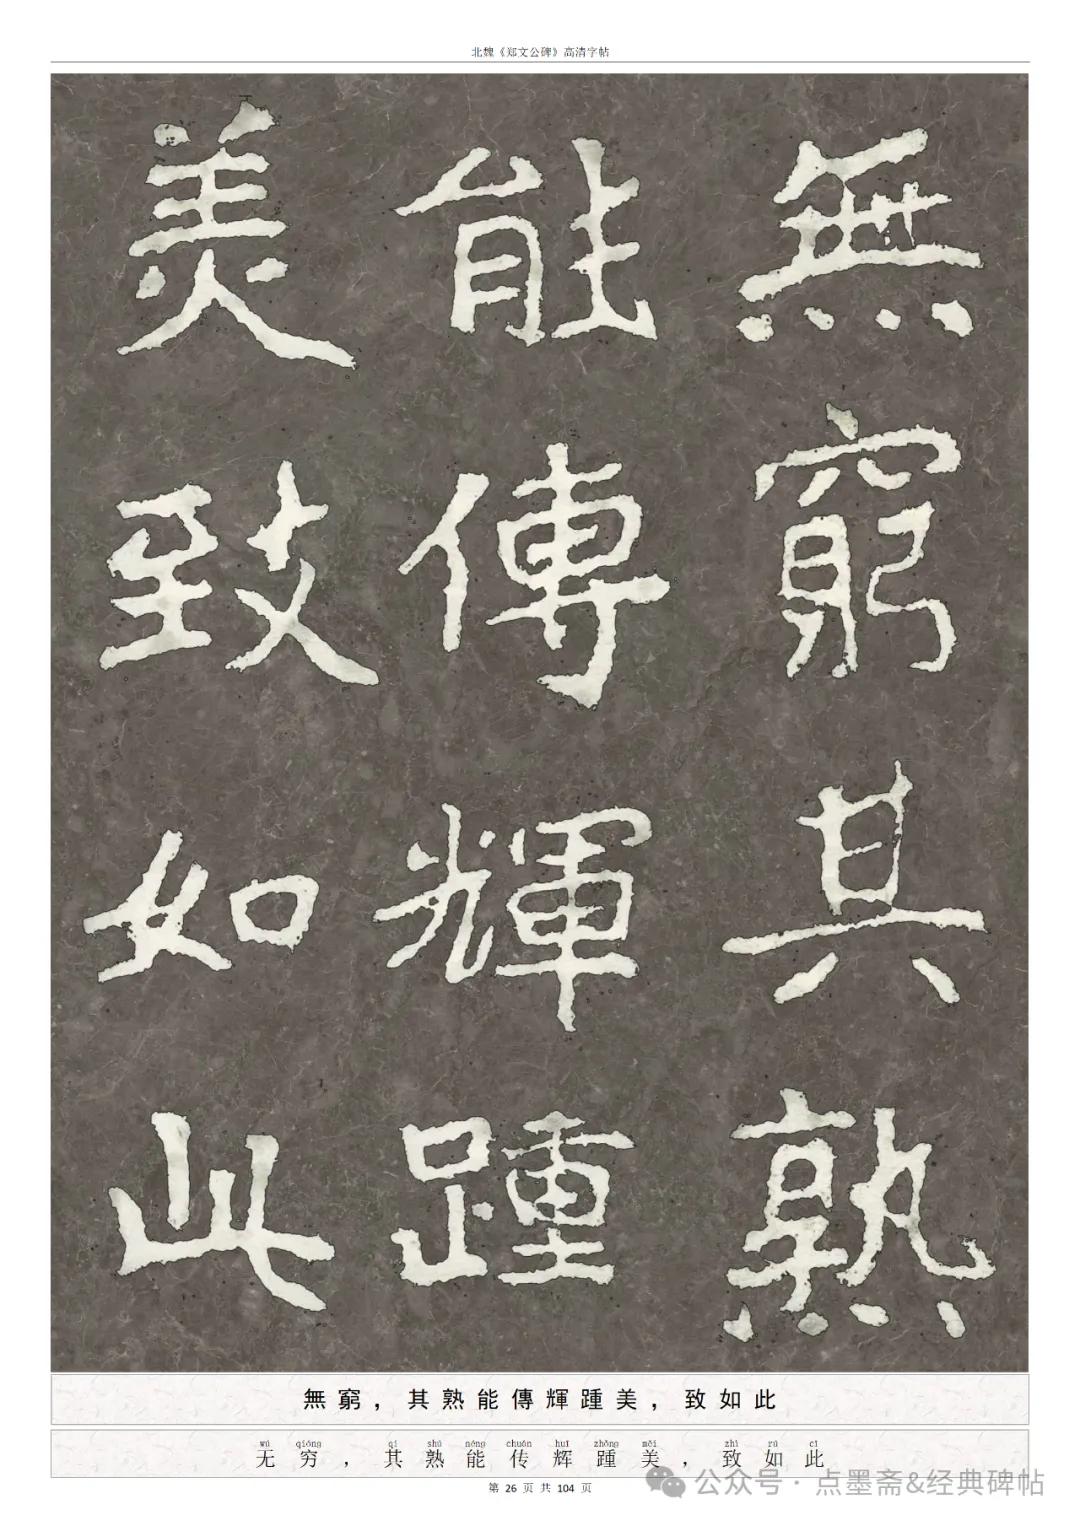 北魏《郑文公碑》高清字帖
無窮其熟
能傳輝踵
美致如此
無窮，其熟能傳輝踵美，致如此
wú qióng qí shú néng chuán huī zhǒng měi zhì rú cǐ
无穷，其熟能传辉踵美，致如此
公众号·点墨斋&经典碑帖
第 26 页 共 104 页